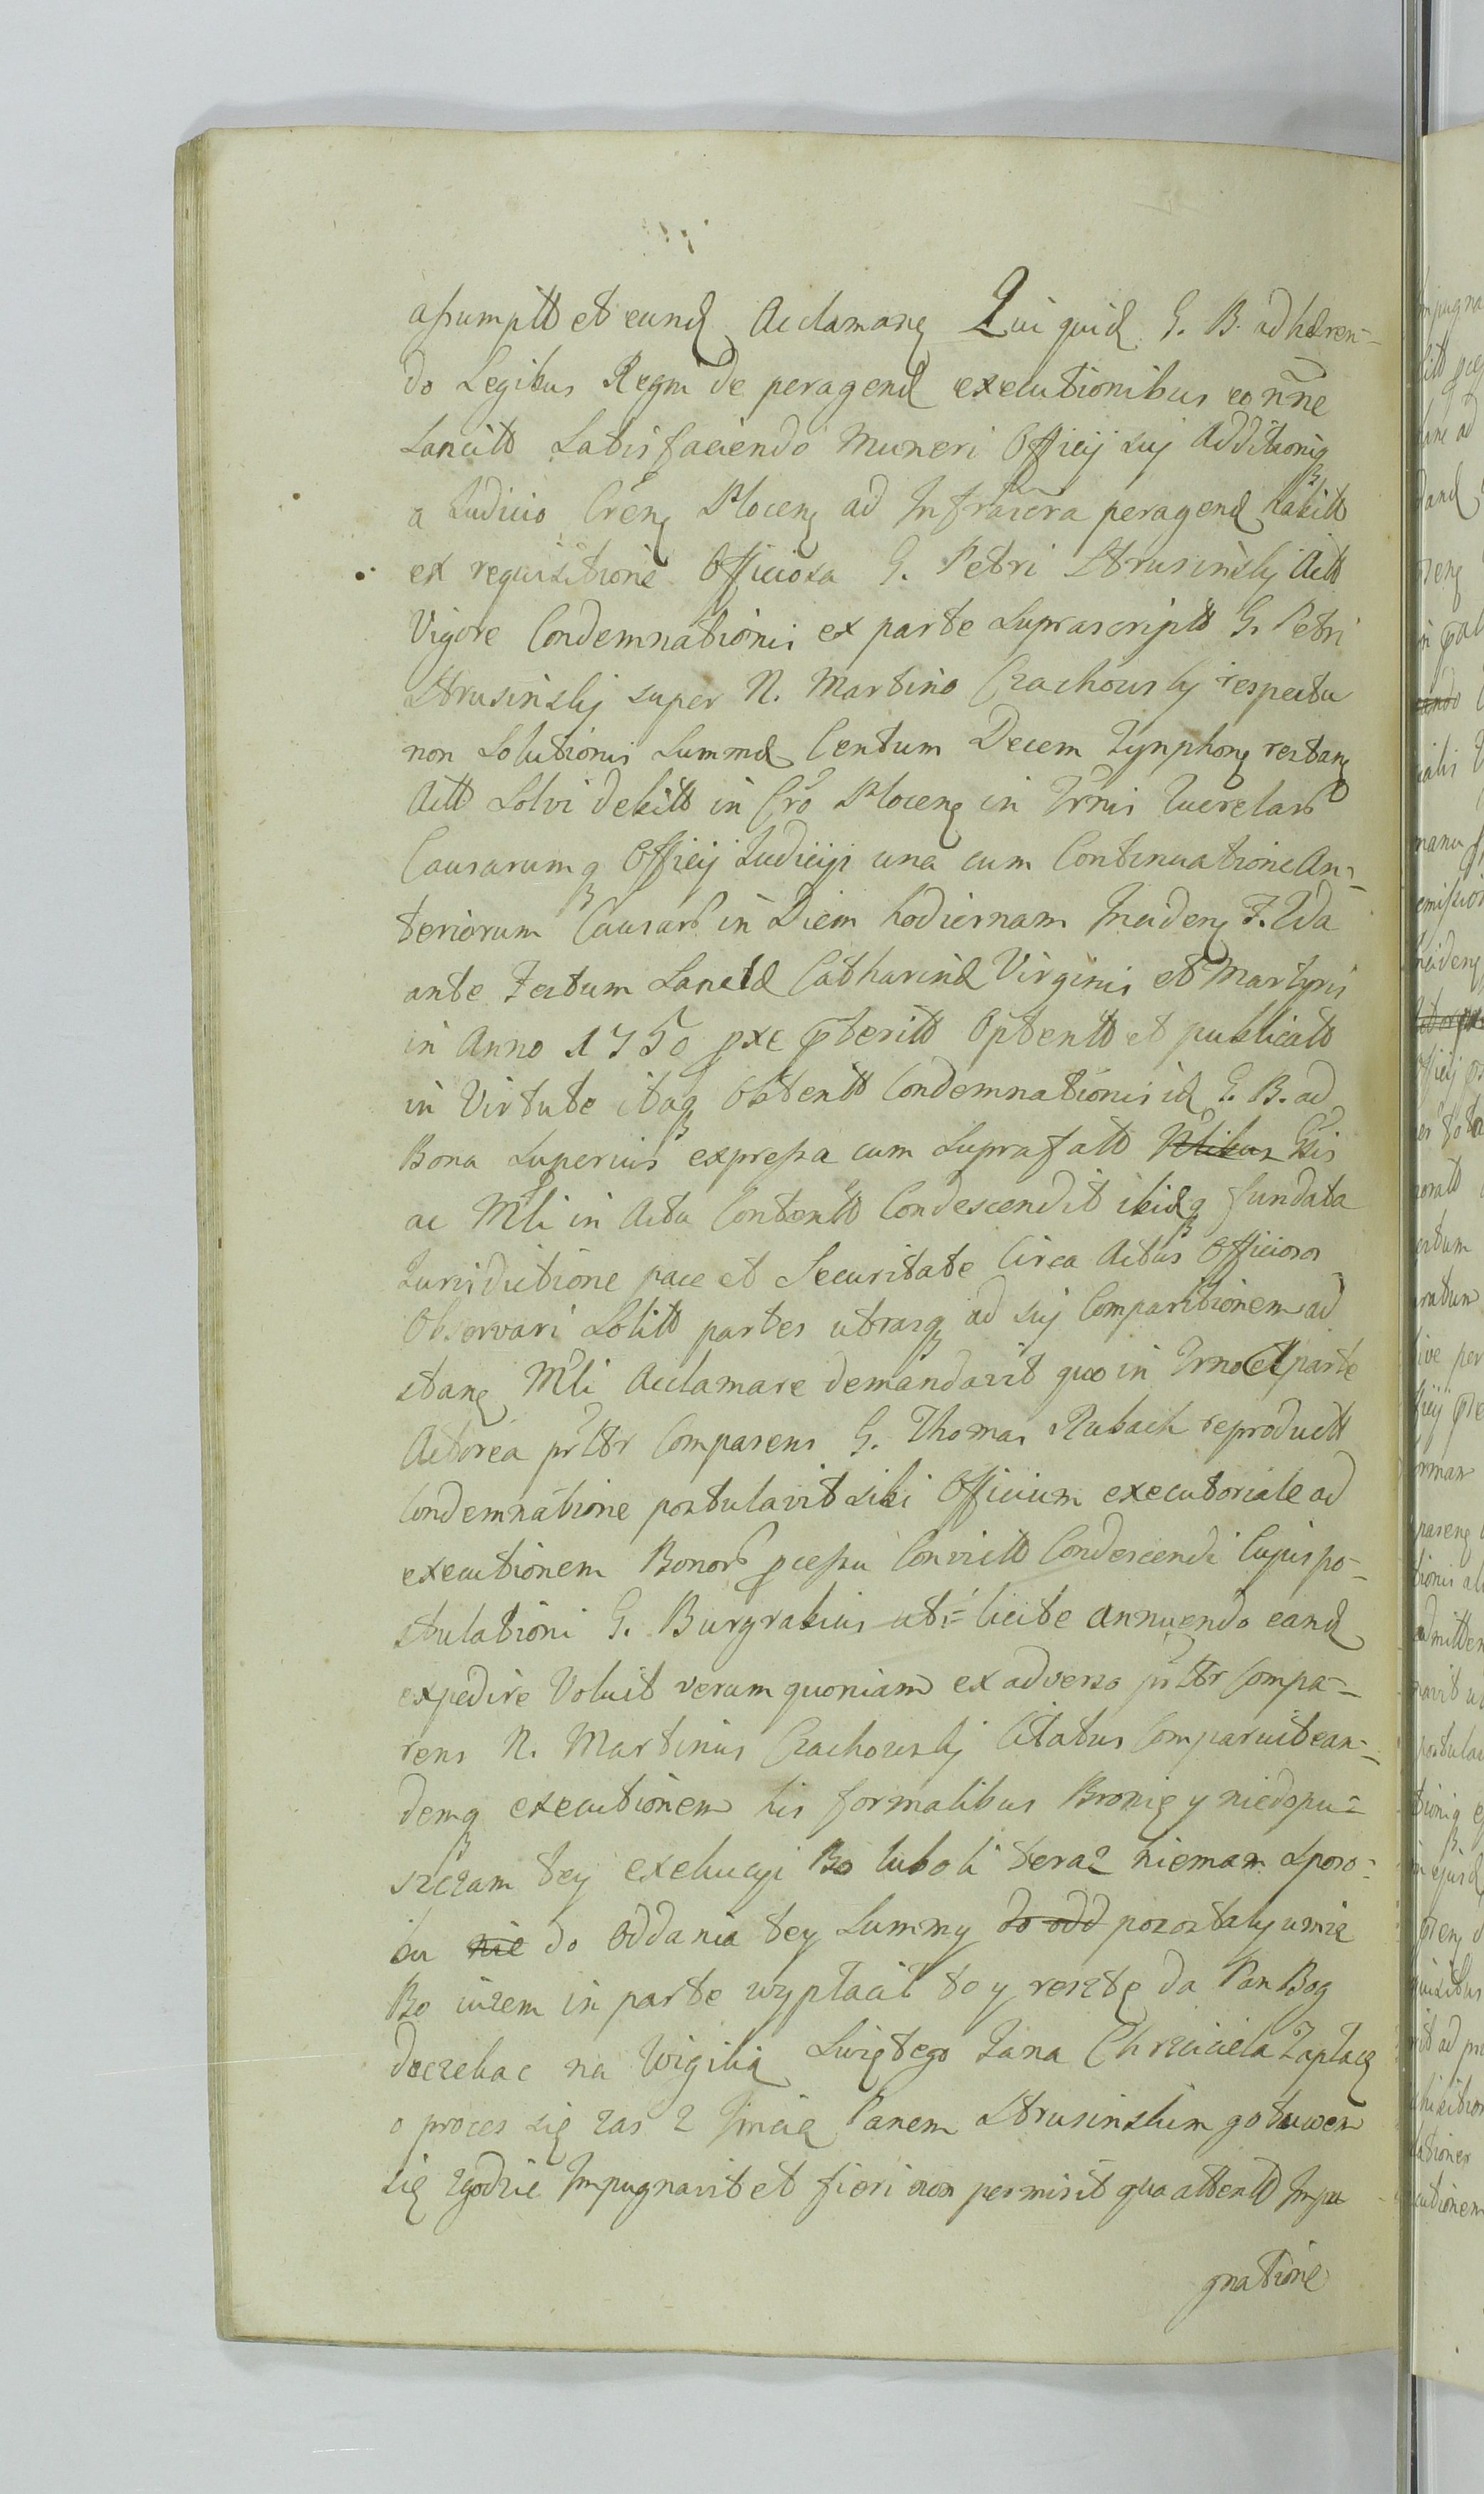 assumptt et eund Acclamang Qui quid G. B. adhæren-
do Legibus Regni de peragend executionibus eo nne
Sancitt Satisfaciendo Muneri Officij suj Additionisq
a Judicio Crēng Ploceng ad Infrascra peragend habitt
ex requisitione Officiosa G. Petri Strusinskj Actt
Vigore Condemnationis ex parte Suprascriptt G. Petri
Strusinskj super N. Martino Czachowskj respectu
non Solutionis Summæ Centum Decem Tynphong restang
Actt Solvi debitt in Cro Ploceng in Trnis Querelarb
Causarumq Officij Judicijs una cum Continuatione An-
teriorum Causarb in Diem hodiernam Incideng F. 2da
ante Festum Sanctæ Catharinæ Virginis et Martyris
in Anno 1750 pxe pterito Optentt et publicatt
in Virtute itaq Obtentt Condemnationis id G. B. ad
Bona Superius expressa cum Suprafatt Gsis
ac Mli in Actu Contentt Condescendit ibidq fundata
Jurisdictione pace et Securitate Circa Actus Officiosos
Observari Solitt partes utrasq ad suj Comparitionem ad
stang Mli Acclamare demandavit quo in Trno et parte
Actorea prltr Comparens G. Thomas Rubach reproductt
Condemnatione postulavit sibi Officium executoriale ad
executionem Bonorb pcessu Convictt Condescendi Cujus po-
stulationi G. Burgrabius uti licite annuendo eand
expedire Voluit verum quoniam ex adverso prltr Compa-
rens N. Martinus Czachowskj Citatus Comparuit ean-
demq executionem his formalibus Bronię y niedopu-
szczam tey exekucyi Bo luboli teraz niemam sposo-
bu nie do Oddania tey Summy do odd pozostaly umie
Bo iuzem in parte wyplacil to y resztę da Pan Bog
doczekac na Wigilią Swiętego Jana Chrzciciela Zaplacę
o proces się zas z Jmcią Panem Strusinskim gotuwem
się zgodzic Impugnavit et fieri non permisit qua attentt Impu
gnatione